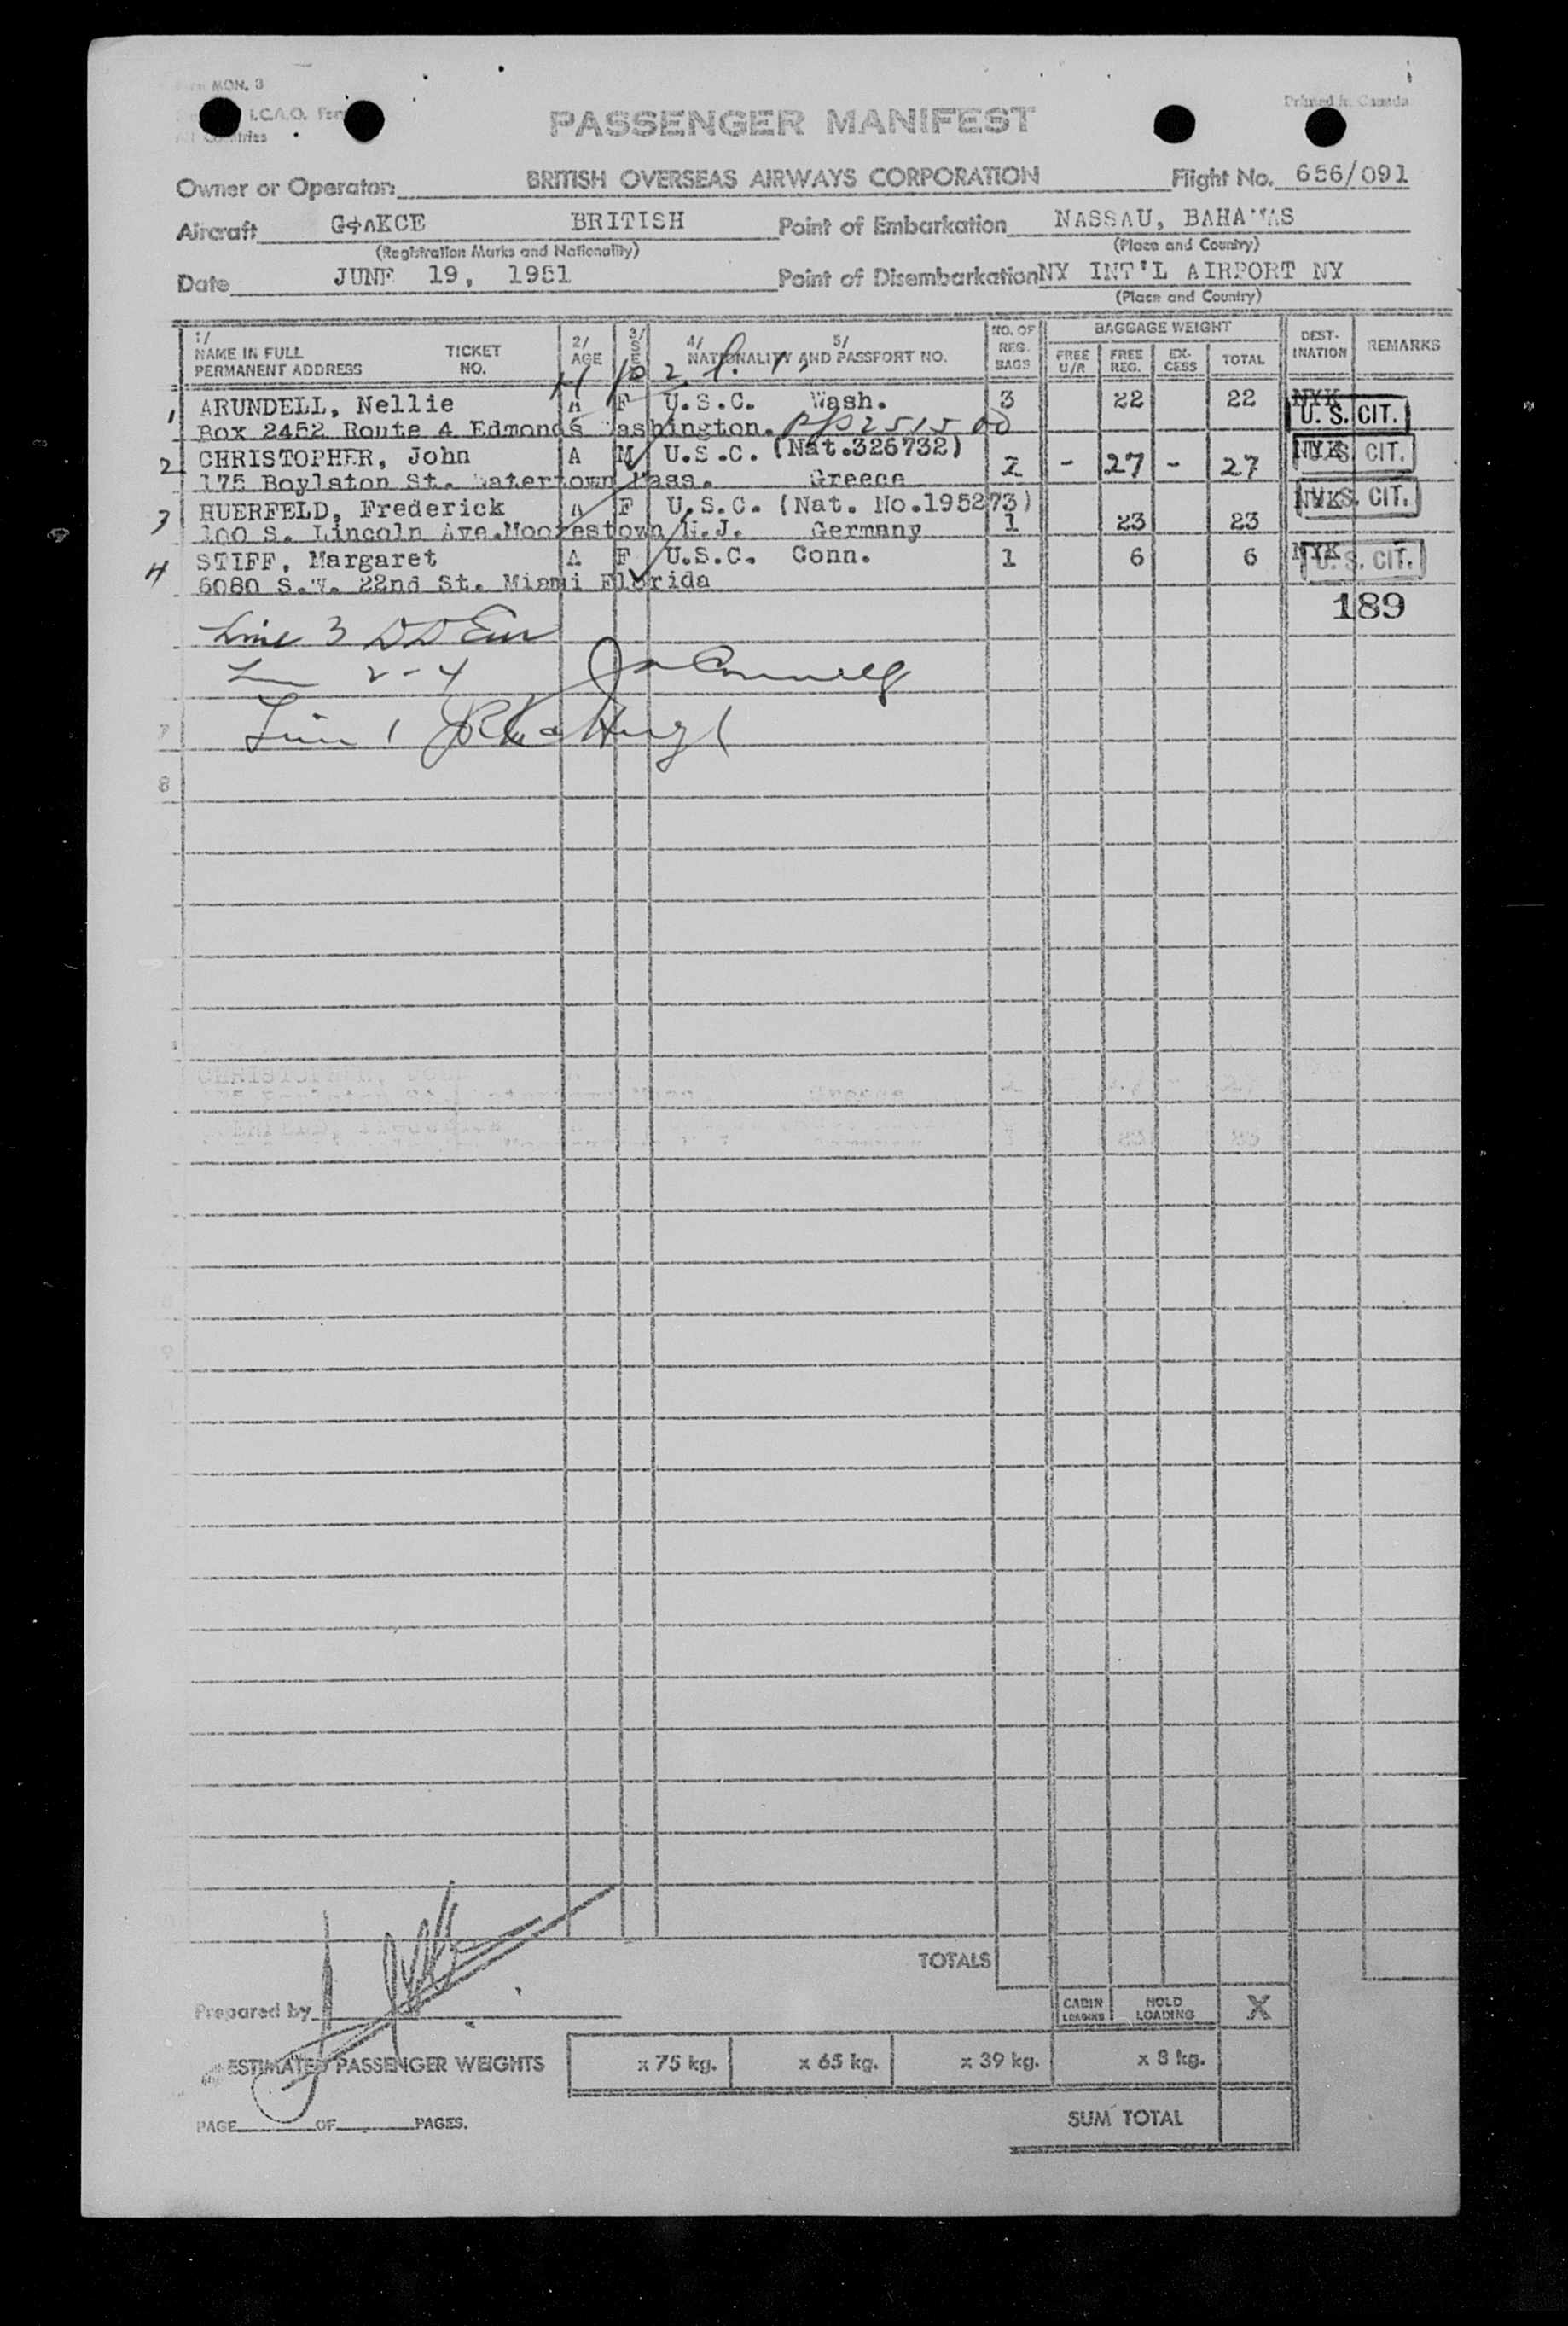 MON. 3
I.C.A.O.
Printed in Canada
PASSENGER MANIFEST
Owner or Operator: BRITISH OVERSEAS AIRWAYS CORPORATION Flight No. 656/091
Aircraft G-AKCE BRITISH Point of Embarkation NASSAU, BAHAMAS
(Registration Marks and Nationality) (Place and Country)
Date JUNE 19, 1951 Point of Disembarkation NY INT'L AIRPORT NY
(Place and Country)
1/ NAME IN FULL PERMANENT ADDRESS TICKET NO. 2/ AGE 3/ SEX 4/ 5/ NATIONALITY AND PASSPORT NO. NO. OF REG. BAGS BAGGAGE WEIGHT FREE U/R FREE REG. EX-CESS TOTAL DEST-INATION REMARKS
1 ARUNDELL, Nellie A F U.S.C. Wash. 3 22 22 NYK U. S. CIT.
Box 2452 Route 4 Edmonds Washington.
2 CHRISTOPHER, John A M U.S.C. (Nat.326732) 2 - 27 - 27 NYK U. S. CIT.
175 Boylston St. Watertown Mass. Greece
3 HUERFELD, Frederick A F U.S.C. (Nat. No.195273) 1 23 23 NYK U. S. CIT.
100 S. Lincoln Ave.Moorestown N.J. Germany
4 STIFF, Margaret A F U.S.C. Conn. 1 6 6 NYK U. S. CIT.
6080 S.W. 22nd St. Miami Florida
189
Line 3
2-4
Line 1
7
8
TOTALS
Prepared by
CABIN LOADING HOLD LOADING X
ESTIMATED PASSENGER WEIGHTS x 75 kg. x 65 kg. x 39 kg. x 8 kg.
PAGE OF PAGES.
SUM TOTAL